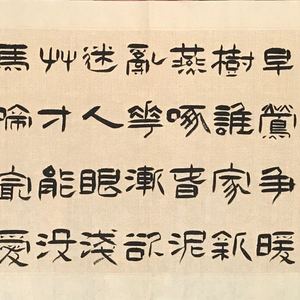 早鶯争暖
樹誰家新
燕啄春泥
亂華漸欲
迷人眼淺
艸才能没
馬蹄冣愛